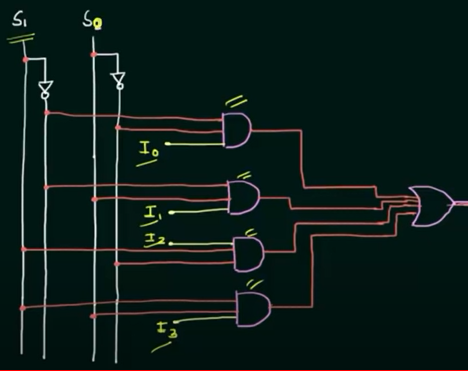 S₁ S₀
I₀
I₁
I₂
I₃